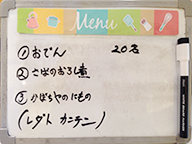 Menu
①おでん 20名
②さばのおろし煮
③かぼちゃのにもの
(レダト カニテニー)